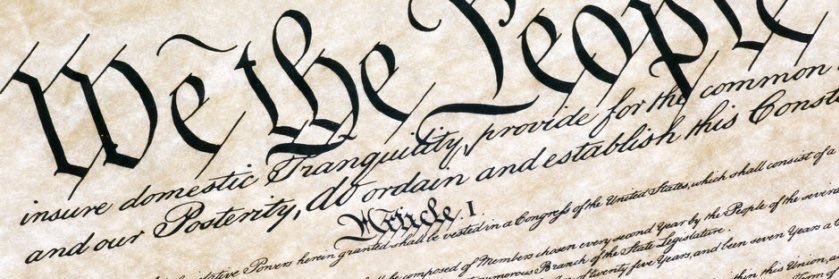 We the People
insure domestic Tranquility, provide for the common
and our Posterity, do ordain and establish this Consti
Article. I.
Powers herein granted shall be vested in a Congress of the United States, which shall consist of a
be composed of Members chosen every second Year by the People of the several
numerous Branch of the State Legislature.
of twenty five Years, and been seven Years a
within this Union,